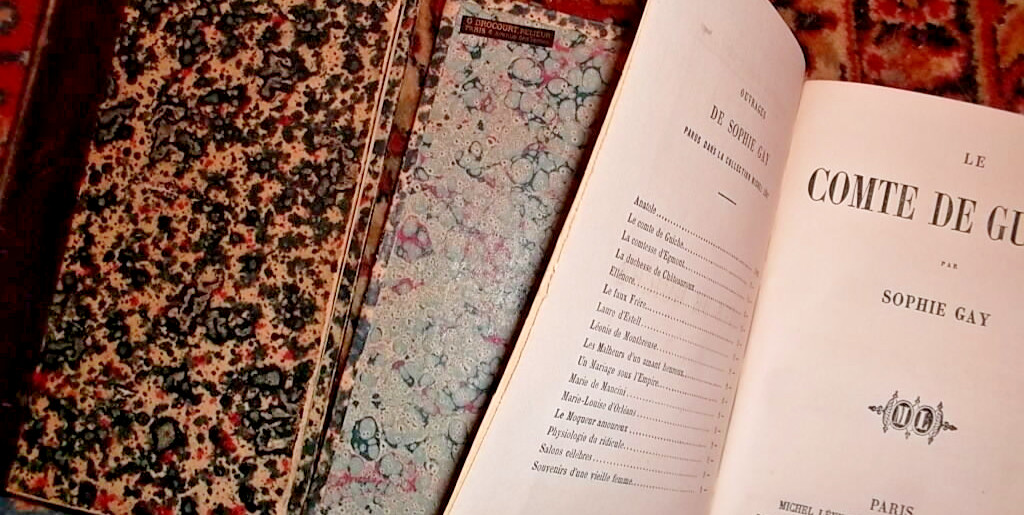 O DROCOURT. RELIEUR
PARIS
OUVRAGES
DE SOPHIE GAY
PARUS DANS LA COLLECTION MICHEL
Anatole
Le comte de Guiche
La comtesse d'Egmont
La duchesse de Châteauroux
Ellénore
Le faux Frère
Laure d'Estell
Léonie de Montbreuse
Les Malheurs d'un amant heureux
Un Mariage sous l'Empire
Marie de Mancini
Marie-Louise d'Orléans
Le Moqueur amoureux
Physiologie du ridicule
Salons célèbres
Souvenirs d'une vieille femme
LE
COMTE DE GU
PAR
SOPHIE GAY
PARIS
MICHEL